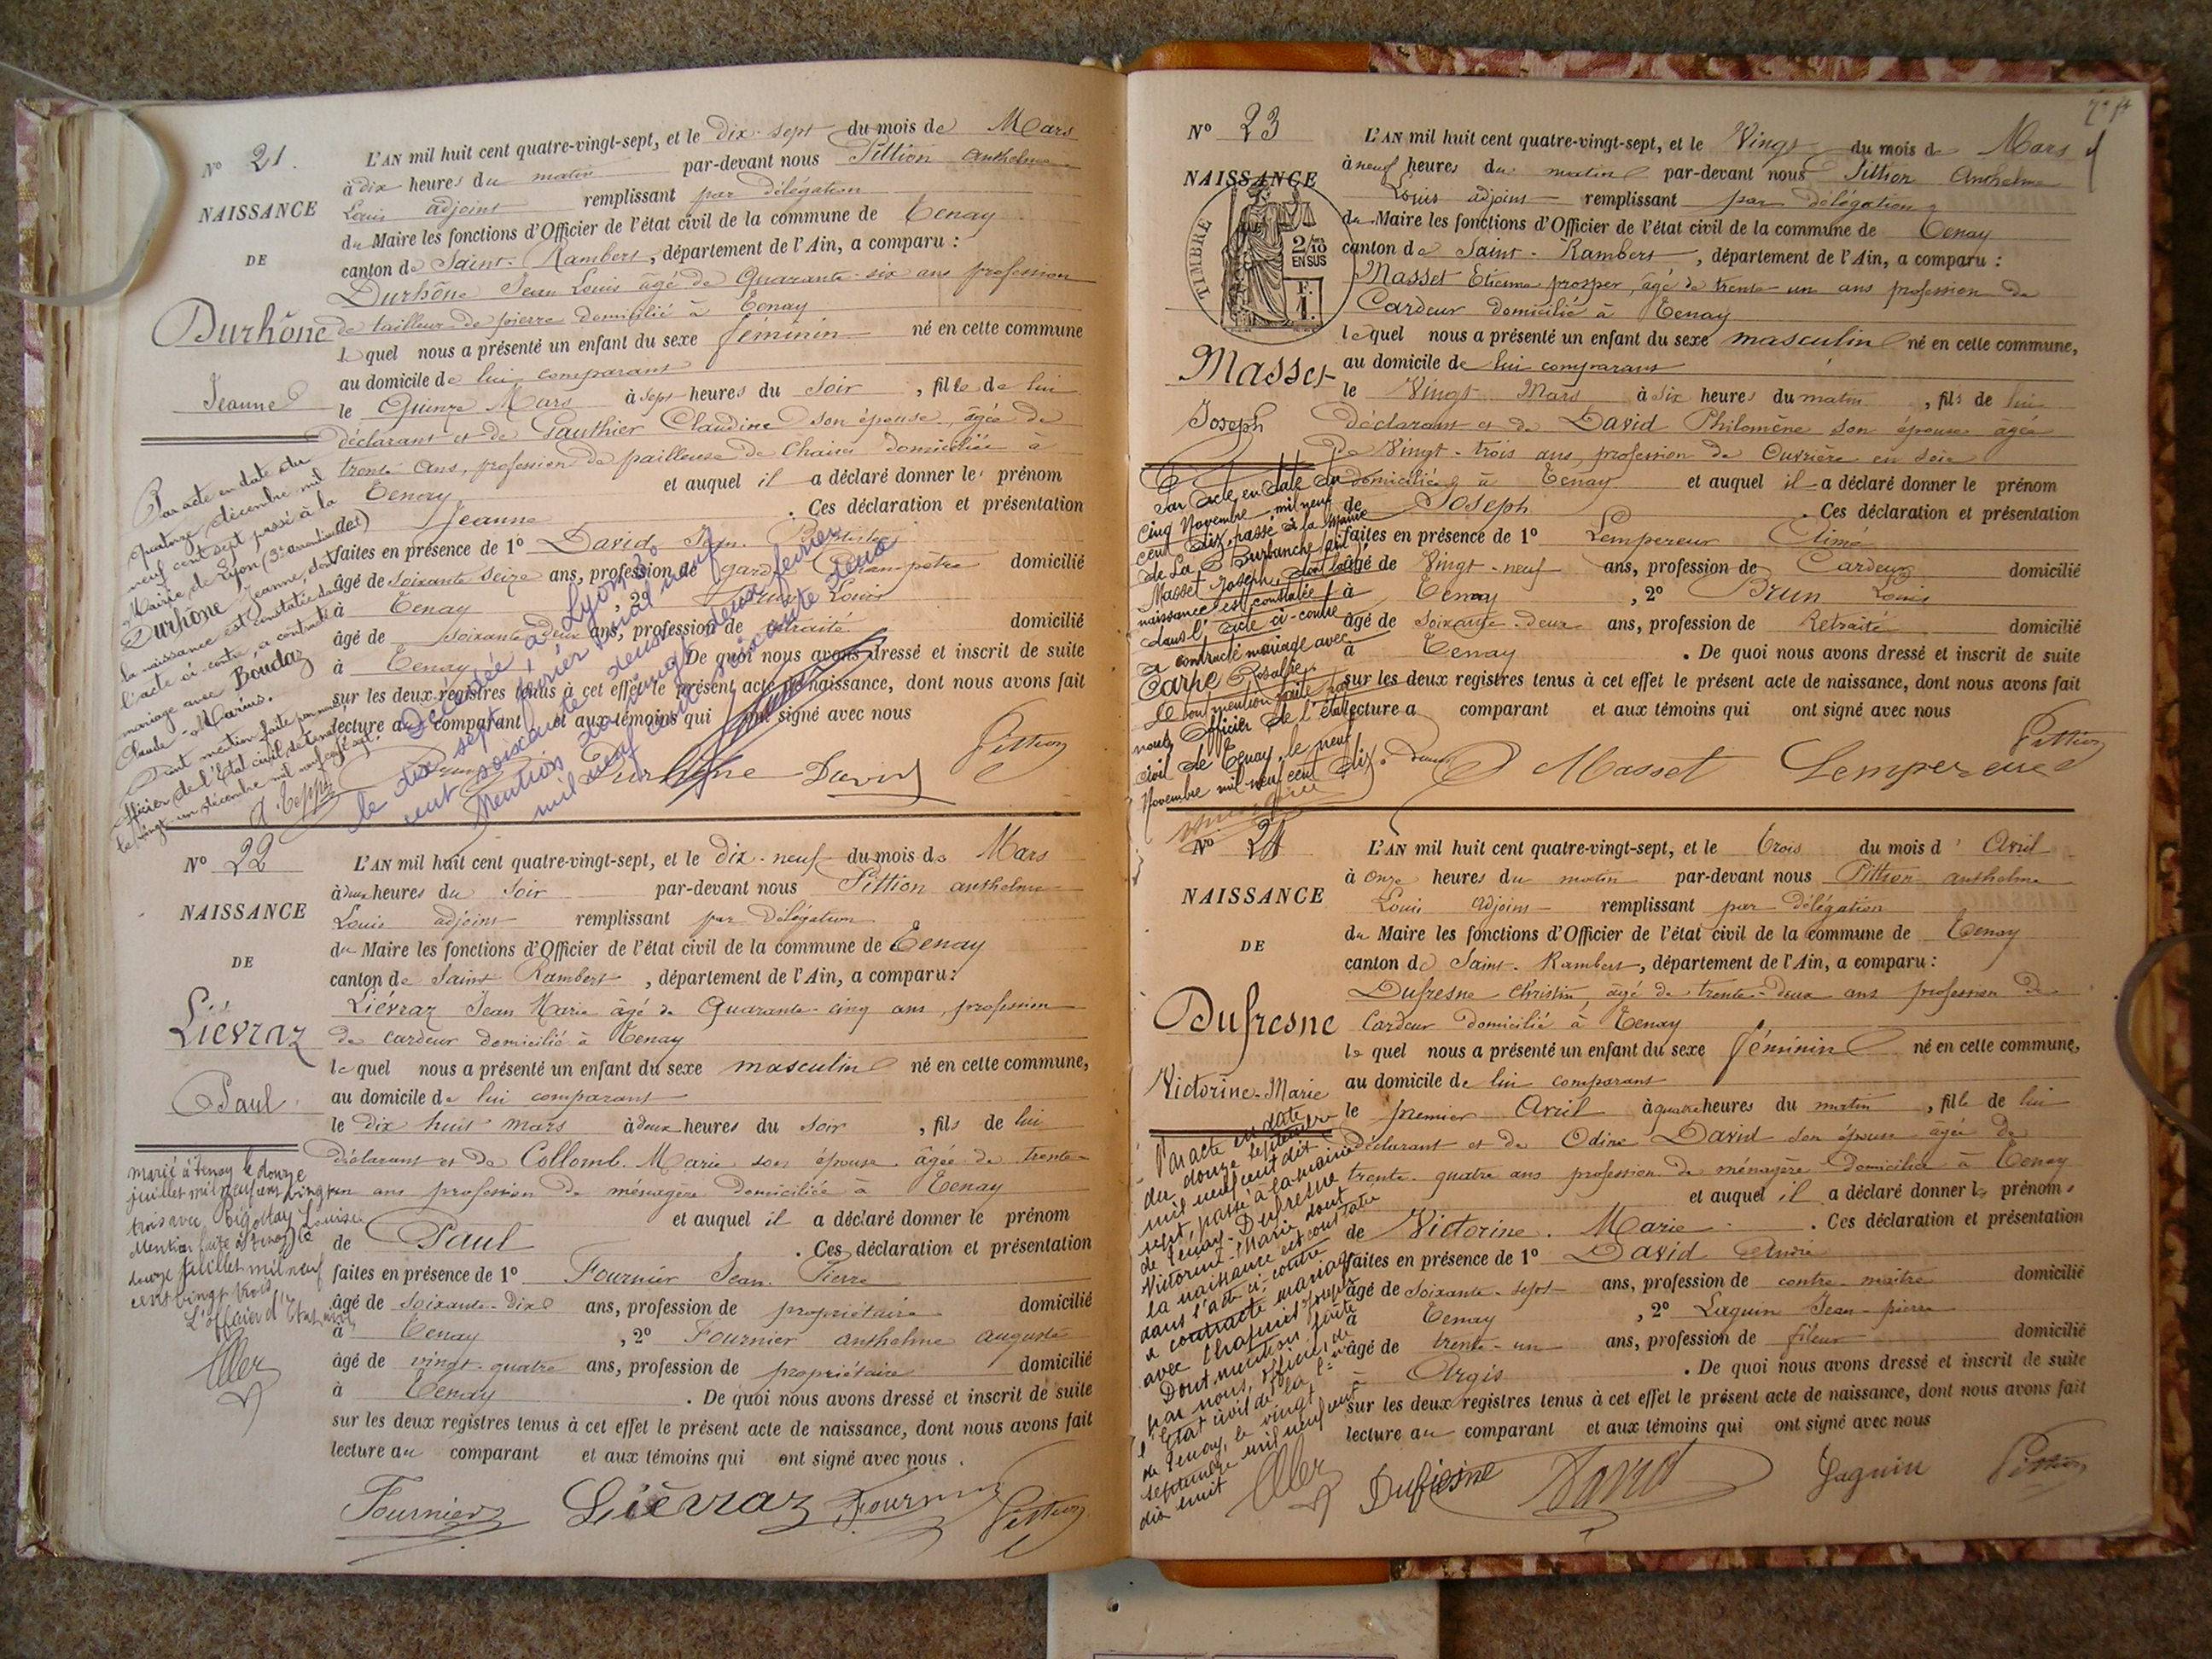 N° 21.
NAISSANCE
DE
Durhône
Jeanne
L'AN mil huit cent quatre-vingt-sept, et le dix-sept du mois de Mars
à dix heures du matin par-devant nous Pittion anthelme
Louis adjoint remplissant par délégation
du Maire les fonctions d'Officier de l'état civil de la commune de Tenay
canton de Saint-Rambert, département de l'Ain, a comparu :
Durhône Jean Louis âgé de Quarante-six ans profession
de tailleur de pierre domicilié à Tenay
le quel nous a présenté un enfant du sexe féminin né en cette commune
au domicile de lui comparant
le Quinze Mars à sept heures du soir, fille de lui
déclarant et de Gauthier Claudine son épouse, âgée de
trente ans, profession de pailleuse de chaises domiciliée à
Tenay et auquel il a déclaré donner le prénom
Jeanne . Ces déclaration et présentation
faites en présence de 1° David Jean Baptiste
âgé de soixante seize ans, profession de garde champêtre domicilié
à Tenay , 2° Louis
âgé de soixante deux ans, profession de retraité domicilié
à Tenay . De quoi nous avons dressé et inscrit de suite
sur les deux registres tenus à cet effet le présent acte de naissance, dont nous avons fait
lecture au comparant et aux témoins qui ont signé avec nous
Durhône David Pittion
Par acte en date du
quatorze décembre mil
neuf cent sept passé à la
Mairie de Lyon (3e arrondissement)
Durhône Jeanne, dont
la naissance est constatée dans
l'acte ci-contre, a contracté
mariage avec Boudaz
Claude-Marius.
Dont mention faite par nous
officier de l'état civil de Tenay
le vingt un décembre mil neuf cent sept.
Décédée à Lyon 3°
le dix sept février mil neuf
cent soixante deux
Mention du vingt deux février
mil neuf cent soixante deux
N° 22
NAISSANCE
DE
Liévraz
Paul
L'AN mil huit cent quatre-vingt-sept, et le dix-neuf du mois de Mars
à deux heures du soir par-devant nous Pittion anthelme
Louis adjoint remplissant par délégation
du Maire les fonctions d'Officier de l'état civil de la commune de Tenay
canton de Saint Rambert, département de l'Ain, a comparu :
Liévraz Jean Marie âgé de Quarante-cinq ans, profession
de cardeur domicilié à Tenay
le quel nous a présenté un enfant du sexe masculin né en cette commune,
au domicile de lui comparant
le dix huit mars à deux heures du soir, fils de lui
déclarant et de Collomb Marie son épouse âgée de trente-
un ans profession de ménagère domiciliée à Tenay
et auquel il a déclaré donner le prénom
de Paul . Ces déclaration et présentation
faites en présence de 1° Fournier Jean Pierre
âgé de soixante-dix ans, profession de propriétaire domicilié
à Tenay , 2° Fournier anthelme auguste
âgé de vingt-quatre ans, profession de propriétaire domicilié
à Tenay . De quoi nous avons dressé et inscrit de suite
sur les deux registres tenus à cet effet le présent acte de naissance, dont nous avons fait
lecture au comparant et aux témoins qui ont signé avec nous.
Fournier Liévraz Fournier Pittion
marié à Tenay le douze
juillet mil neuf cent vingt
trois avec Louise
Mention faite à Tenay le
douze juillet mil neuf
cent vingt trois
L'officier d'Etat civil
N° 23
NAISSANCE
TIMBRE
2/10
EN SUS
F.
1.
Masset
Joseph
L'AN mil huit cent quatre-vingt-sept, et le Vingt du mois de Mars
à neuf heures du matin par-devant nous Pittion Anthelme
Louis adjoint remplissant par délégation
du Maire les fonctions d'Officier de l'état civil de la commune de Tenay
canton de Saint-Rambert, département de l'Ain, a comparu :
Masset Etienne prosper, âgé de trente un ans profession de
Cardeur domicilié à Tenay
le quel nous a présenté un enfant du sexe masculin né en cette commune,
au domicile de lui comparant
le Vingt Mars à six heures du matin, fils de lui
déclarant et de David Philomène son épouse agée
de Vingt-trois ans, profession de Ouvrière en soie
domiciliée à Tenay et auquel il a déclaré donner le prénom
de Joseph . Ces déclaration et présentation
faites en présence de 1° Lempereur
âgé de Vingt-neuf ans, profession de Cardeur domicilié
à Tenay , 2° Brun Louis
âgé de soixante-deux ans, profession de Retraité domicilié
à Tenay . De quoi nous avons dressé et inscrit de suite
sur les deux registres tenus à cet effet le présent acte de naissance, dont nous avons fait
lecture a comparant et aux témoins qui ont signé avec nous
Masset Lempereur Pittion
Par acte en date du
cinq Novembre mil neuf
cent dix, passé à la Mairie
de La Burbanche (Ain)
Masset Joseph, dont la
naissance est constatée
dans l'acte ci-contre
a contracté mariage avec
Carpe Rosalie.
Dont mention faite par
nous Officier de l'état
civil de Tenay, le neuf
Novembre mil neuf cent dix.
N° 24
NAISSANCE
DE
Dufresne
Victorine-Marie
L'AN mil huit cent quatre-vingt-sept, et le Trois du mois d'Avril
à onze heures du matin par-devant nous Pittion anthelme
Louis adjoint remplissant par délégation
du Maire les fonctions d'Officier de l'état civil de la commune de Tenay
canton de Saint-Rambert, département de l'Ain, a comparu :
Dufresne Christin, âgé de trente-deux ans profession de
Cardeur domicilié à Tenay
le quel nous a présenté un enfant du sexe féminin né en cette commune,
au domicile de lui comparant
le premier Avril à quatre heures du matin, fille de lui
déclarant et de Odine David son épouse âgée de
trente-quatre ans profession de ménagère domiciliée à Tenay
et auquel il a déclaré donner les prénoms
de Victorine. Marie . Ces déclaration et présentation
faites en présence de 1° David André
âgé de soixante-sept ans, profession de contre-maître domicilié
à Tenay , 2° Laguin Jean-pierre
âgé de trente-un ans, profession de fileur domicilié
à Argis . De quoi nous avons dressé et inscrit de suite
sur les deux registres tenus à cet effet le présent acte de naissance, dont nous avons fait
lecture au comparant et aux témoins qui ont signé avec nous
Dufresne David Laguin Pittion
Par acte en date
du douze septembre
mil neuf cent dix
sept, passé à la mairie
de Tenay, Dufresne
Victorine-Marie dont
la naissance est constatée
dans l'acte ci-contre
a contracté mariage
avec Chapuis Joseph
Dont mention faite
par nous, officier de
l'état civil de la Cne
de Tenay, le vingt
septembre mil neuf cent
dix huit